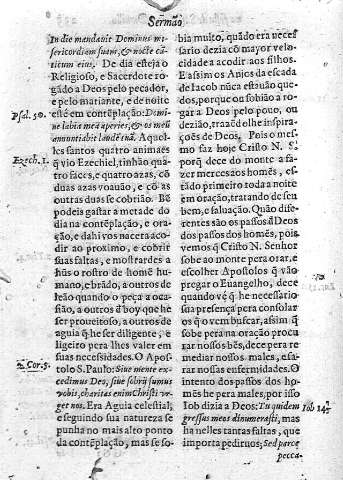 Sermão
In die mandauit Dominus mi-
sericordiam suam, & nocte cã-
ticum eius. De dia esteja o
Religioso, e Sacerdote rogã-
do a Deos pelo pecador,
e pelo mariante, e de noite
esté em contẽplação: Domi-
Psal. 50.
ne labia mea aperies, & os meũ
annuntiabit laudẽ tuã. Aquel-
les santos quatro animaes
Ezech. 1.
q̃ vio Ezechiel, tinhão qua-
tro faces, e quatro azas, cõ
duas azas voauão, e cõ as
outras duas se cobrião. Bẽ
podeis gastar a metade do
dia na contẽplação, e ora-
ção, e dahi vos necera aco-
dir ao proximo, e cobrir
suas faltas, e mostrardes a
hũs o rostro de homẽ hu-
mano, e brãdo, a outros de
leão quando o peça a oca-
sião, a outros d̃ boy que he
ser proueitoso, a outros de
aguia q̃ he ser diligente, e
ligeiro pera lhes valer em
suas necesidades. O Apos-
2. Cor. 5.
tolo S. Paulo: Siue mente ex-
cedimus Deo, siue sobrij sumus
vobis, charitas enim Christi vr-
get nos. Era Aguia celestial,
e seguindo sua natureza se
punha no mais alto ponto
da contẽplação, mas se so-
bia muito, quãdo era neces-
sario dezia cõ mayor velo-
cidade a acodir aos filhos.
E assim os Anjos da escada
de Iacob nũca estauão que-
dos, porque ou sobião a ro-
gar a Deos pelo pouo, ou
dezião, trazẽ dolhe inspira-
ções de Deos. Pois o mes-
mo faz hoje Cristo N. S.
porq̃ dece do monte a fa-
zer merces aos homẽs, es-
tãdo primeiro toda a noite
em oração, tratando de seu
bem, e saluação. Quão dife-
rentes são os passos d̃ Deos
dos passos dos homẽs, pois
vemos q̃ Cristo N. Senhor
sobe ao monte pera orar, e
escolher Apostolos q̃ vão
pregar o Euangelho, dece
quando vé q̃ he necessario
sua presença pera consolar
os q̃ o vem buscar, assim q̃
sobe pera na oração procu-
rar nossos bẽs, dece pera re-
mediar nossos males, e sa-
rar nossas enfermidades. O
intento dos passos dos ho-
mẽs he pera males, por isso
Iob dizia a Deos: Tu quidem
Iob 14.
gressus meos dinumerasti, mas
ha nelles tantas faltas, que
importa pedirvos; Sed parce
pecca-